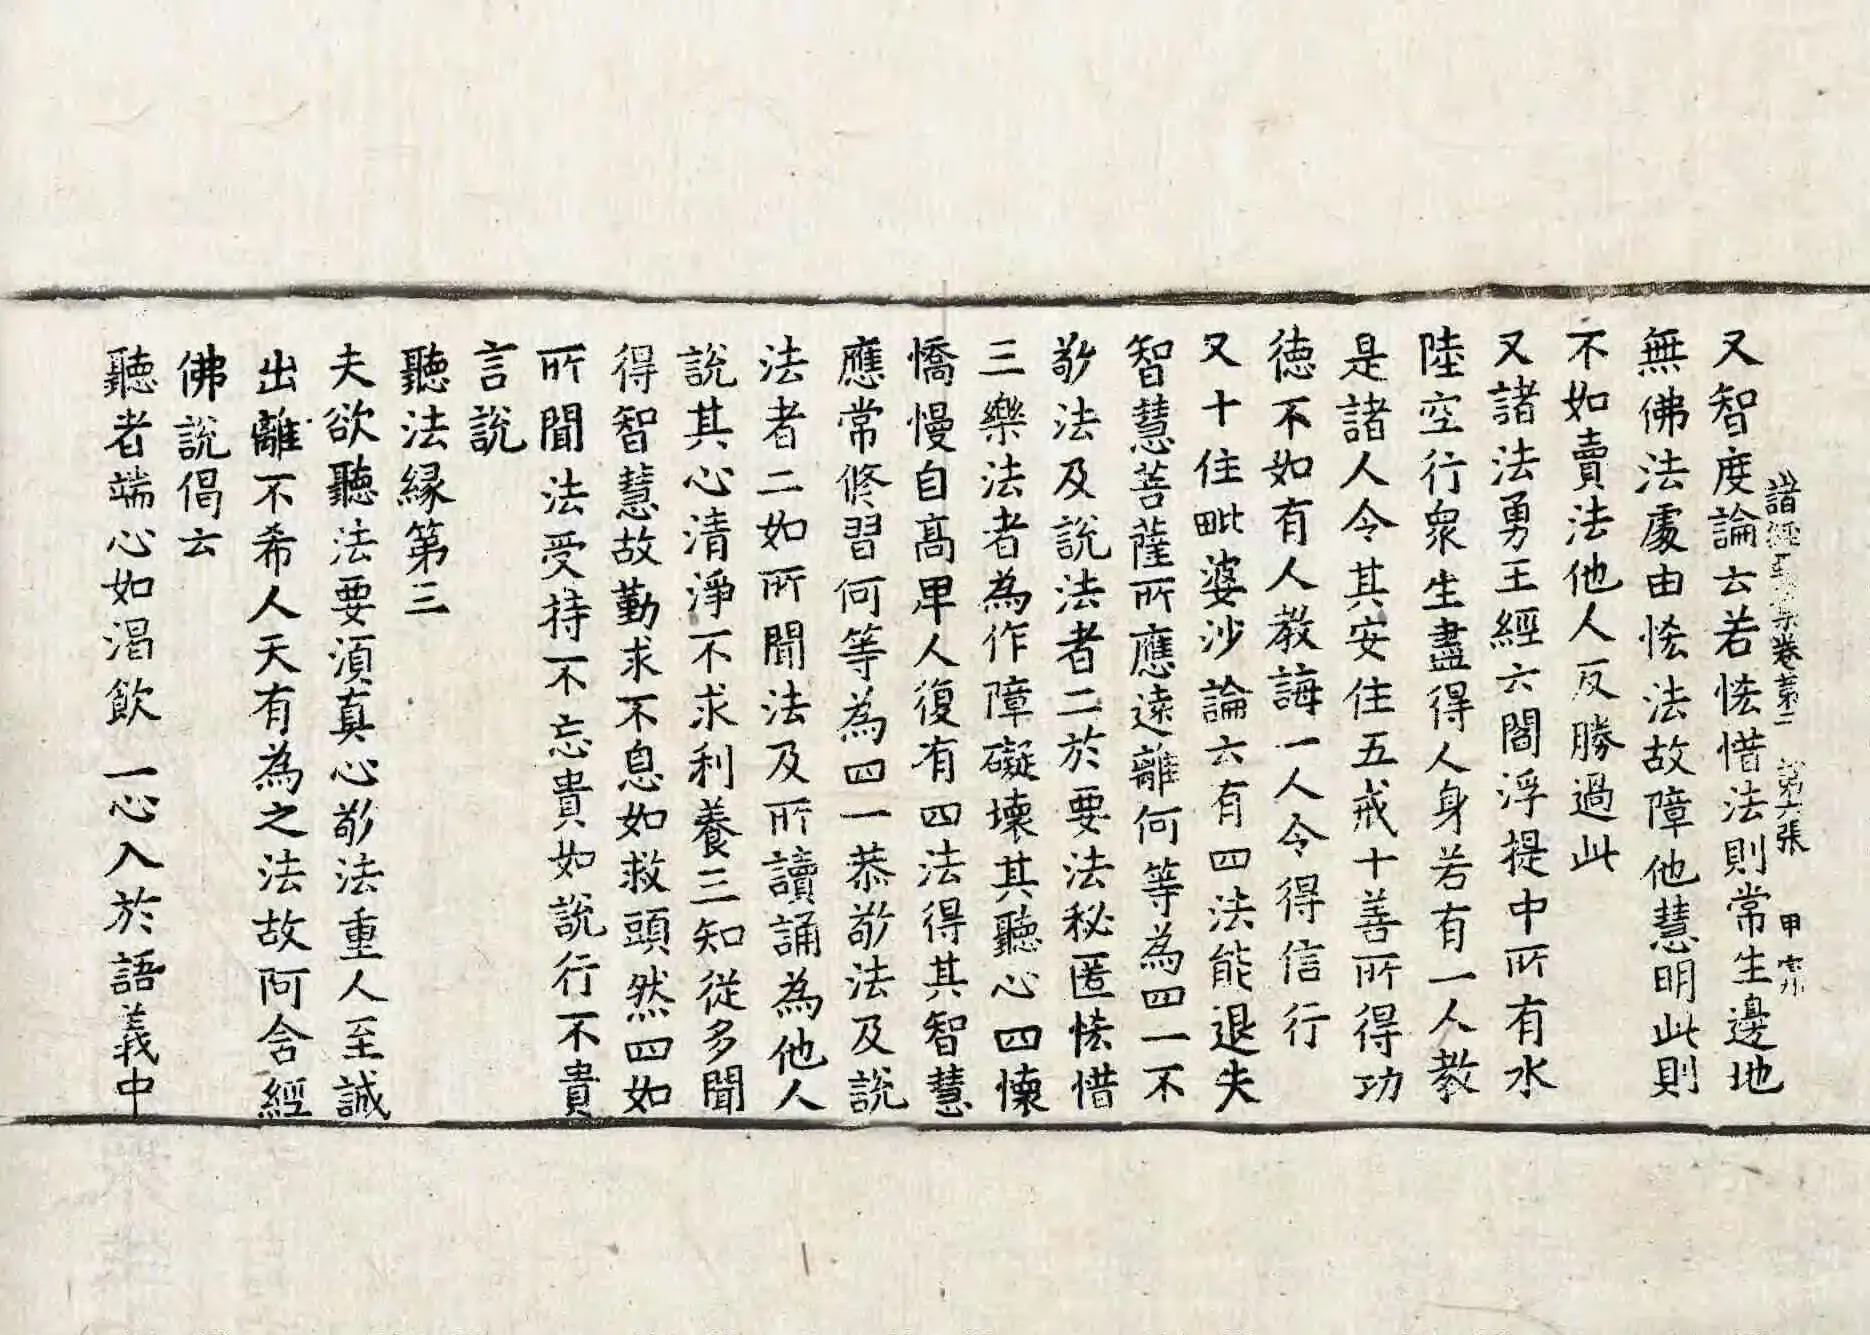 諸經要集卷第二 第六張 甲
又智度論云若恡惜法則常生邊地
無佛法處由恡法故障他慧明此則
不如賣法他人反勝過此
又諸法勇王經云閻浮提中所有水
陸空行衆生盡得人身若有一人教
是諸人令其安住五戒十善所得功
德不如有人教誨一人令得信行
又十住毗婆沙論云有四法能退失
智慧菩薩所應遠離何等為四一不
敬法及說法者二於要法秘匿恡惜
三樂法者為作障礙壞其聽心四懷
憍慢自高卑人復有四法得其智慧
應常修習何等為四一恭敬法及說
法者二如所聞法及所讀誦為他人
說其心清淨不求利養三知從多聞
得智慧故勤求不息如救頭然四如
所聞法受持不忘貴如說行不貴
言說
聽法緣第三
夫欲聽法要湏真心敬法重人至誠
出離不希人天有為之法故阿含經
佛說偈云
聽者端心如渴飲 一心入於語義中